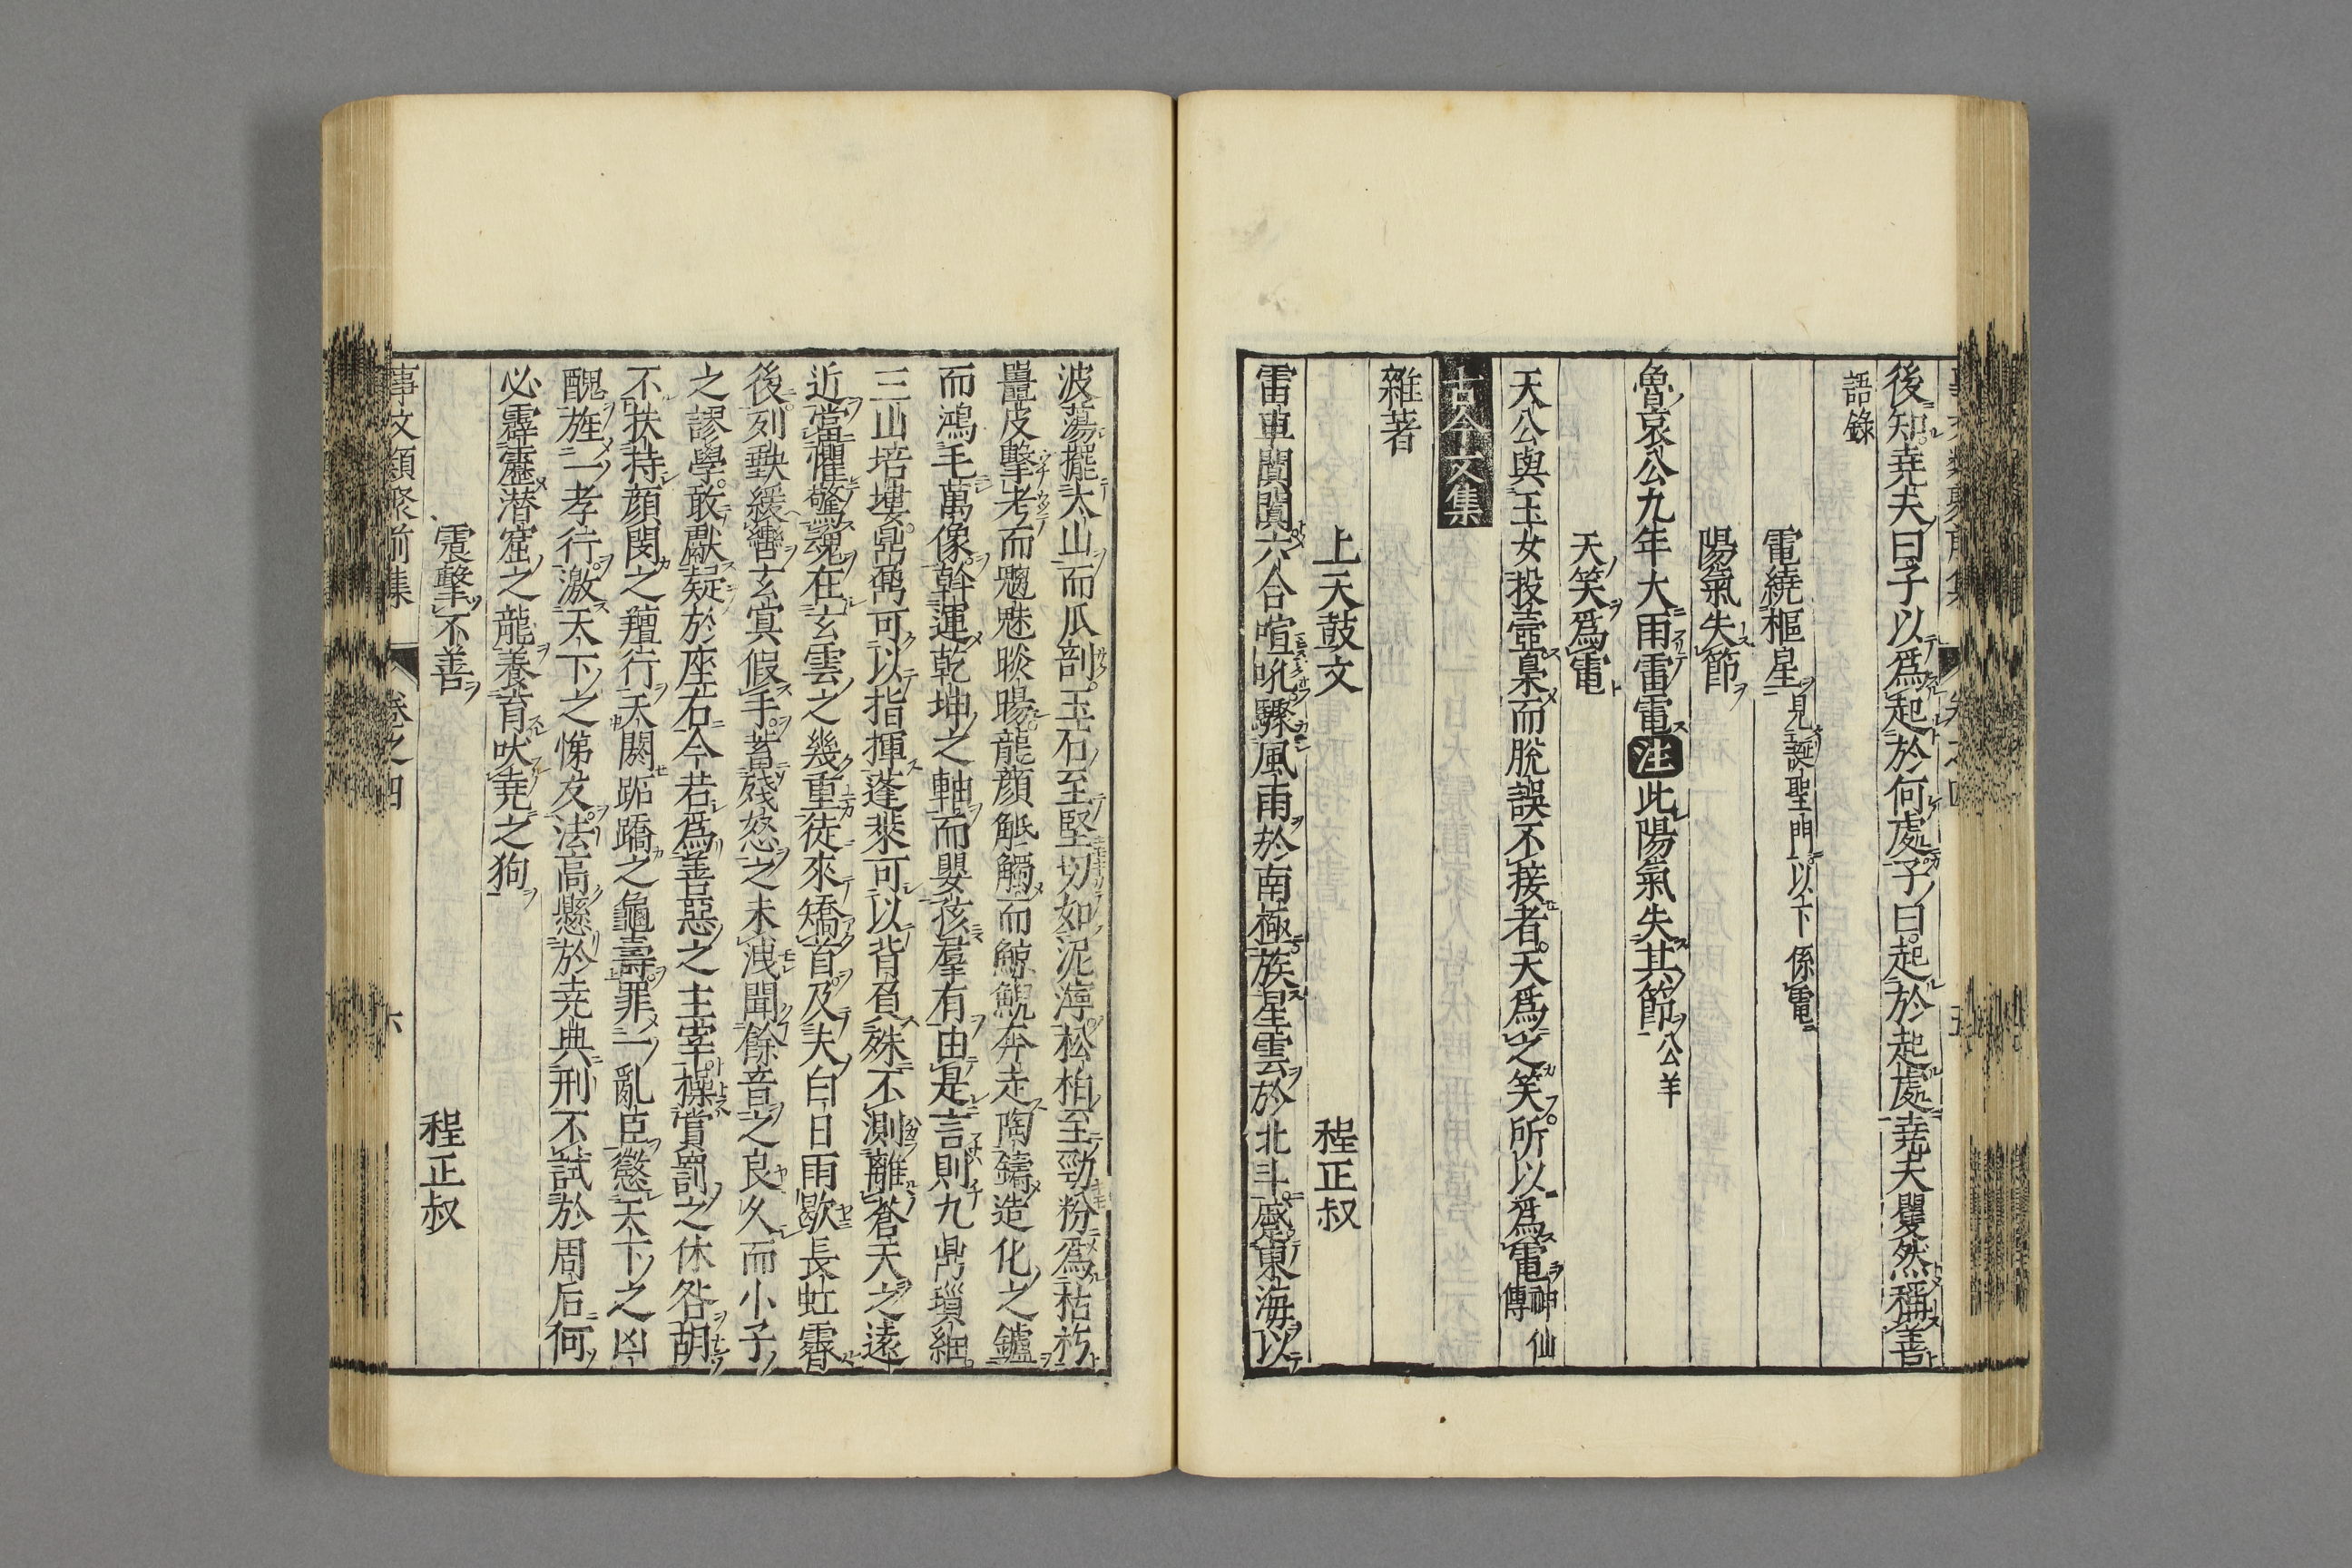 後知堯夫曰子以爲起於何處子曰起於起處堯夫瞿然稱善
語錄
電繞樞星見誕聖門以下係電
陽氣失節
魯哀公九年大雨雷電注此陽氣失其節公羊
天笑爲電
天公與玉女投壺梟而脫誤不接者天爲之笑所以爲電神仙傳
古今文集
雜著
上天鼓文 程正叔
雷車闐闐六合喧吼驟風雨於南極族星雲於北斗感東海以
波蕩擺太山而瓜剖玉石至堅切如泥濘松柏至勁粉爲枯朽
皮擊考而魍魅睒暘龍顏觝觸而鯨鯢奔走陶鑄造化之鑪
而鴻毛萬像斡運乾坤之軸而嬰孩羣有由是言則九鼎瑣細
三山培塿鼎鼐可以指揮蓬萊可以背負殊不測離蒼天之遠
近當懼驚魂在玄雲之幾重徒來矯首及夫白日雨歇長虹霽
後列缺緩轡玄冥假手蓄殘怒之未洩聞餘音之良久而小子
之謬學敢獻疑於座右今若爲善惡之主宰操賞罰之休咎胡
不扶持顏閔之羶行夭閼跖蹻之龜壽罪一亂臣懲天下之凶
醜旌一孝行激天下之悌友法高懸於堯典刑不試於周后何
必霹靂潜窟之龍養育吠堯之狗
震擊不善 程正叔
事文類聚前集 卷之四 六